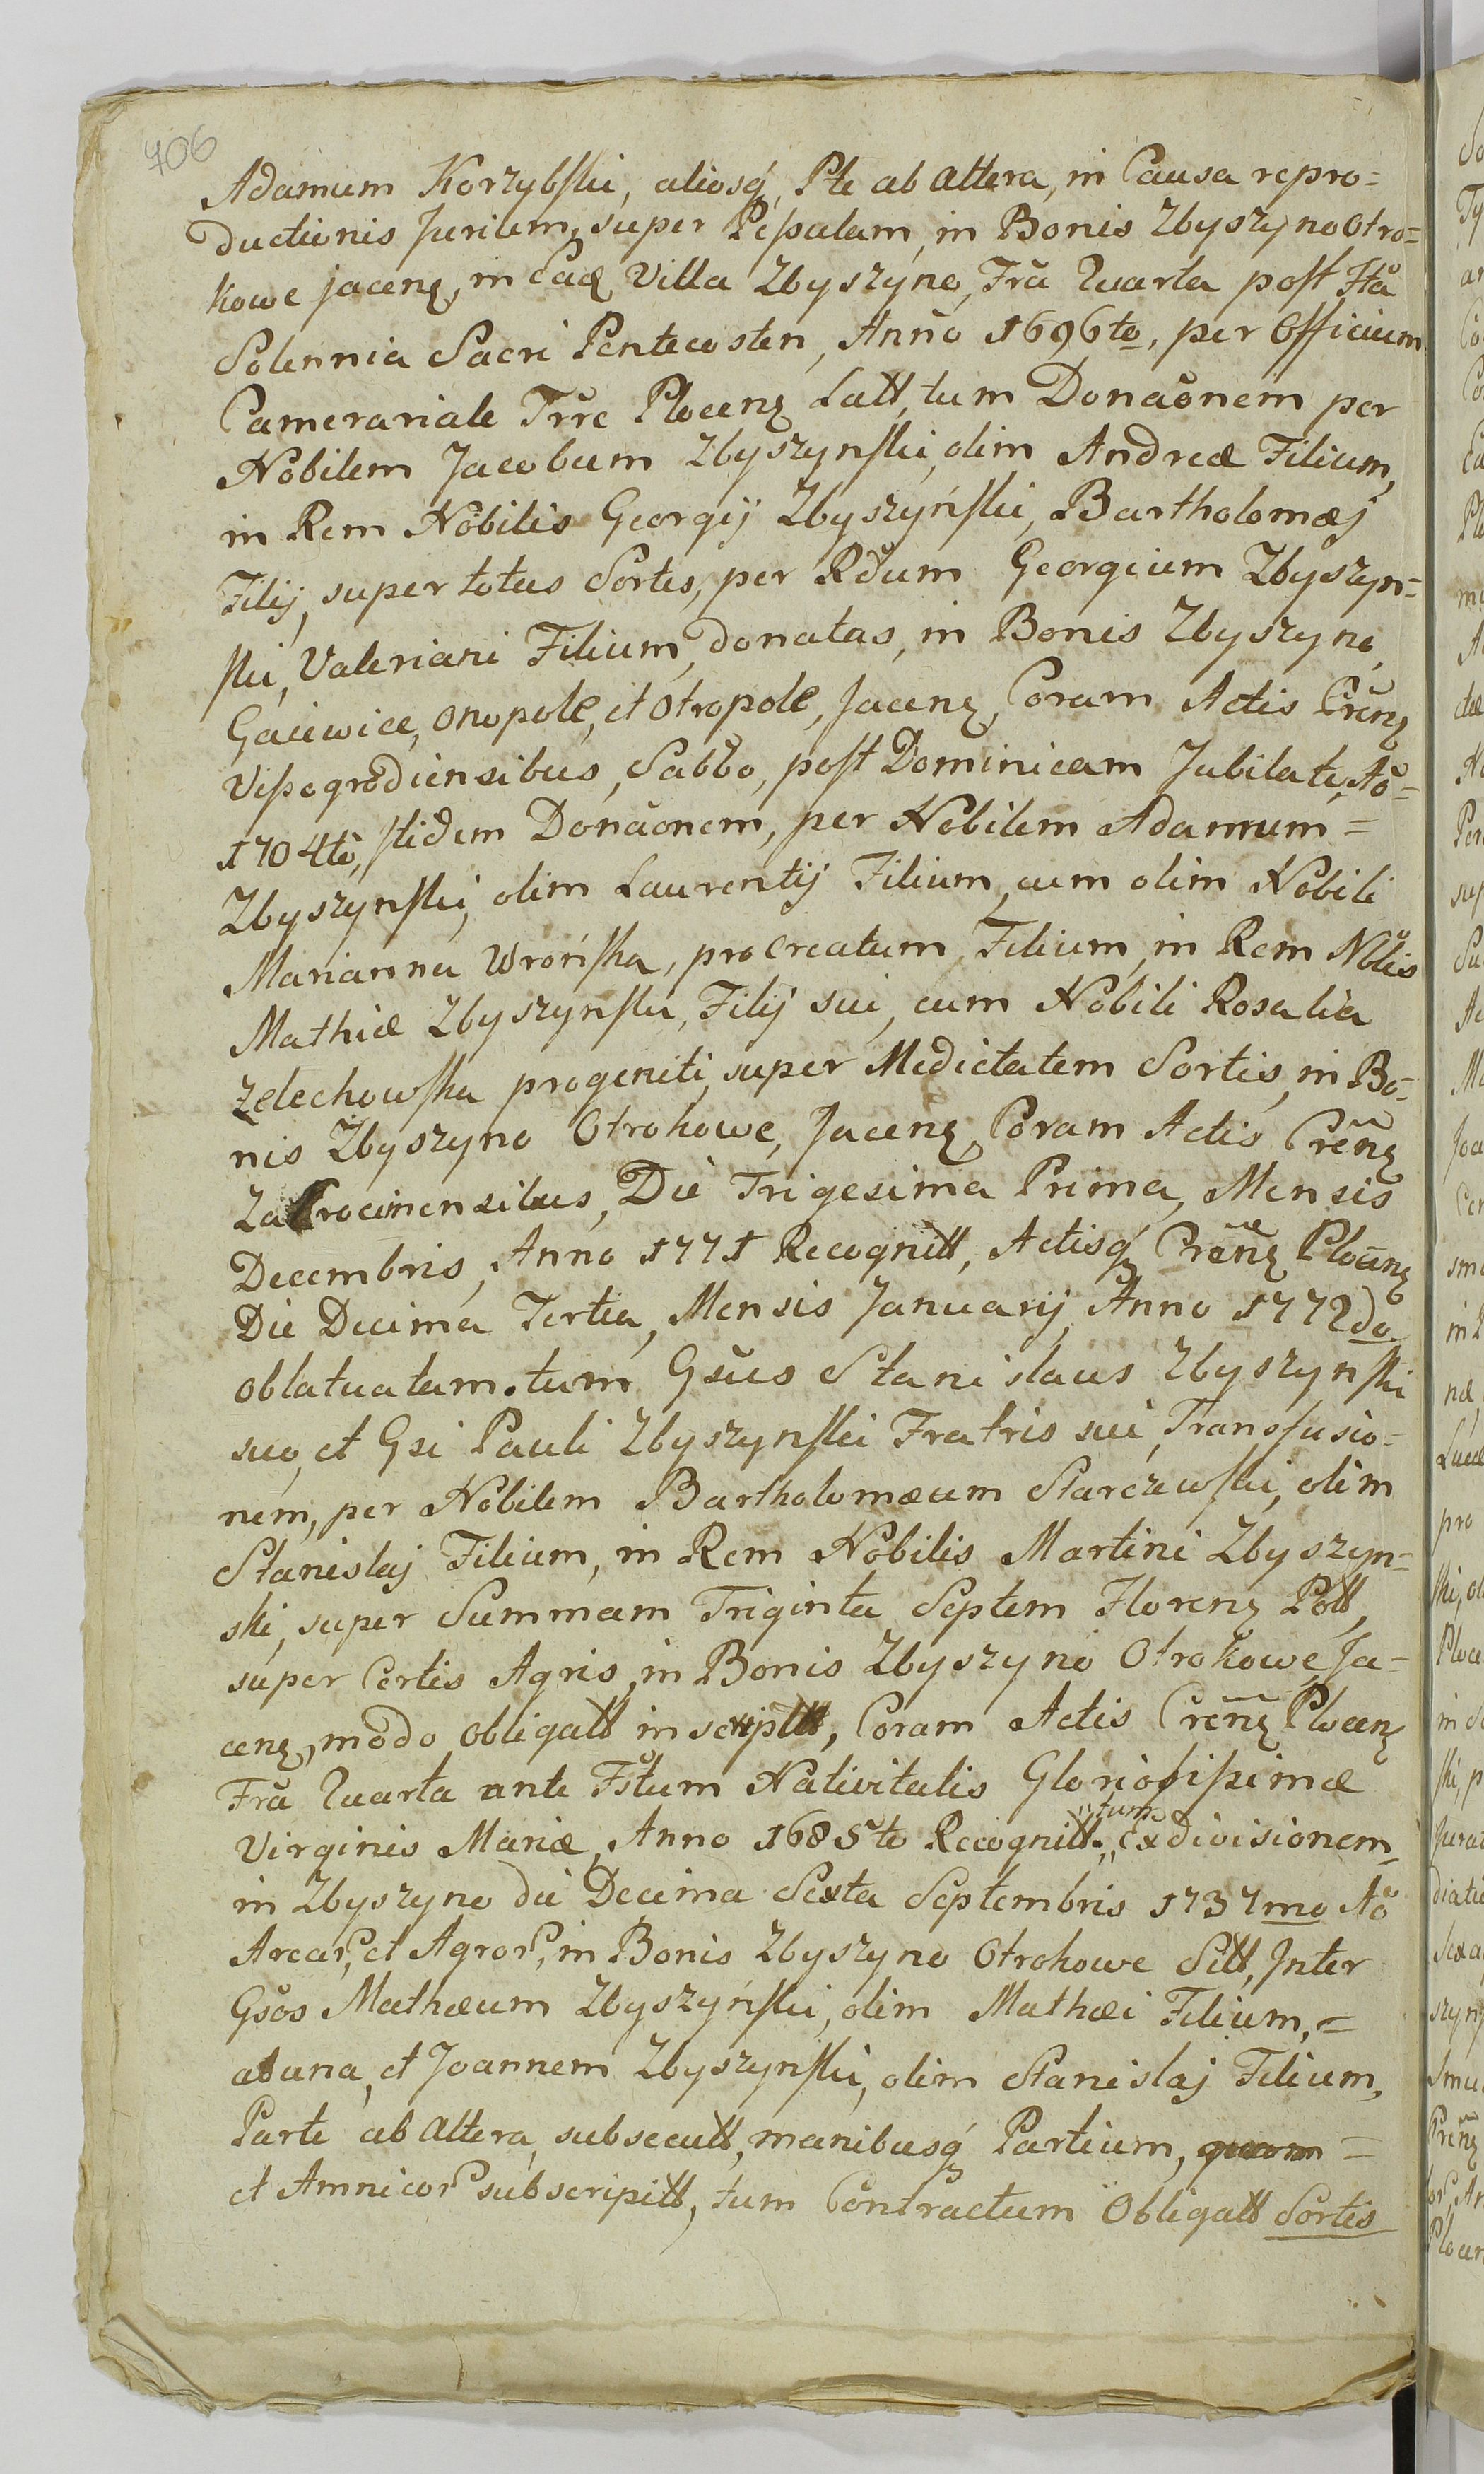 706
Adamum Korzybski, aliosq̃, Pte ab altera, in Causa repro=
ductionis Jurium, super Possalam, in Bonis Zbyszyno Otro=
kowe jacenʒ, in Eadʒ Villa Zbyszyno, Fřa Quarta post Fta
Solennia Sacri Pentecosten, Anno 1696to, per Officium
Camerariale Třre Plocenʒ Latt, tum Donaõnem per
Nobilem Jacobum Zbyszynski, olim Andreæ Filium,
in Rem Nobilis Georgij Zbyszyński, Bartholomæj
Filij, super totas Sortes, per Rdum Georgium Zbyszyn=
ski, Valeriani Filium, donatas, in Bonis Zbyszyno,
Gaiewice, Onopole, et Otropole, Jacenʒ, Coram Actis Cřenʒ
Vissogrodiensibus, Sabbo, post Dominicam Jubilate, Aõ=
1704to, itidem Donaõnem, per Nobilem Adamum=
Zbyszynski, olim Laurentij Filium, cum olim Nobili
Marianna Wrońska, procreatum, Filium, in Rem Nõlis
Mathiæ Zbyszynski, Filij sui, cum Nobili Rosalia
Zelechowska progeniti, super Medietatem Sortis, in Bo=
nis Zbyszyno Otrokowe, Jacenʒ, Coram Actis Cřenʒ
Zakrocimensibus, Die Trigesima Prima, Mensis
Decembris, Anno 1771 Recognitt, Actisq̃, Cřenʒ Plocenʒ
Die Decima Tertia, Mensis Januarij, Anno 1772do
oblatuatum. tum Gsus Stanislaus Zbyszynski
suo, et Gsi Pauli Zbyszynski Fratris sui, Transfusio=
nem, per Nobilem Bartholomæum Starczewski, olim
Stanislaj Filium, in Rem Nobilis Martini Zbyszyn=
ski, super Summam Triginta Septem Florenʒ Pott,
super Certis Agris, in Bonis Zbyszyno Otrokowe, Ja=
cenʒ, modo obligatt inscriptt, Coram Actis Cřenʒ Plocenʒ
Fřa Quarta ante Fstum Nativitatis Gloriosissimæ
Virginis Mariæ, Anno 1685to Recognitt. "tum" Exdivisionem
in Zbyszyno die Decima Sexta Septembris 1737mo Aõ
Arear, et Agror, in Bonis Zbyszyno Otrokowe Sitt, Inter
Gsos Mathæum Zbyszyński, olim Mathæi Filium,=
ab una, et Joannem Zbyszynski, olim Stanislaj Filium,
Parte ab altera, subsecutt, manibusq̃ Partium, =
et Amnicor subscripitt, tum Contractum Obligatt Sortis